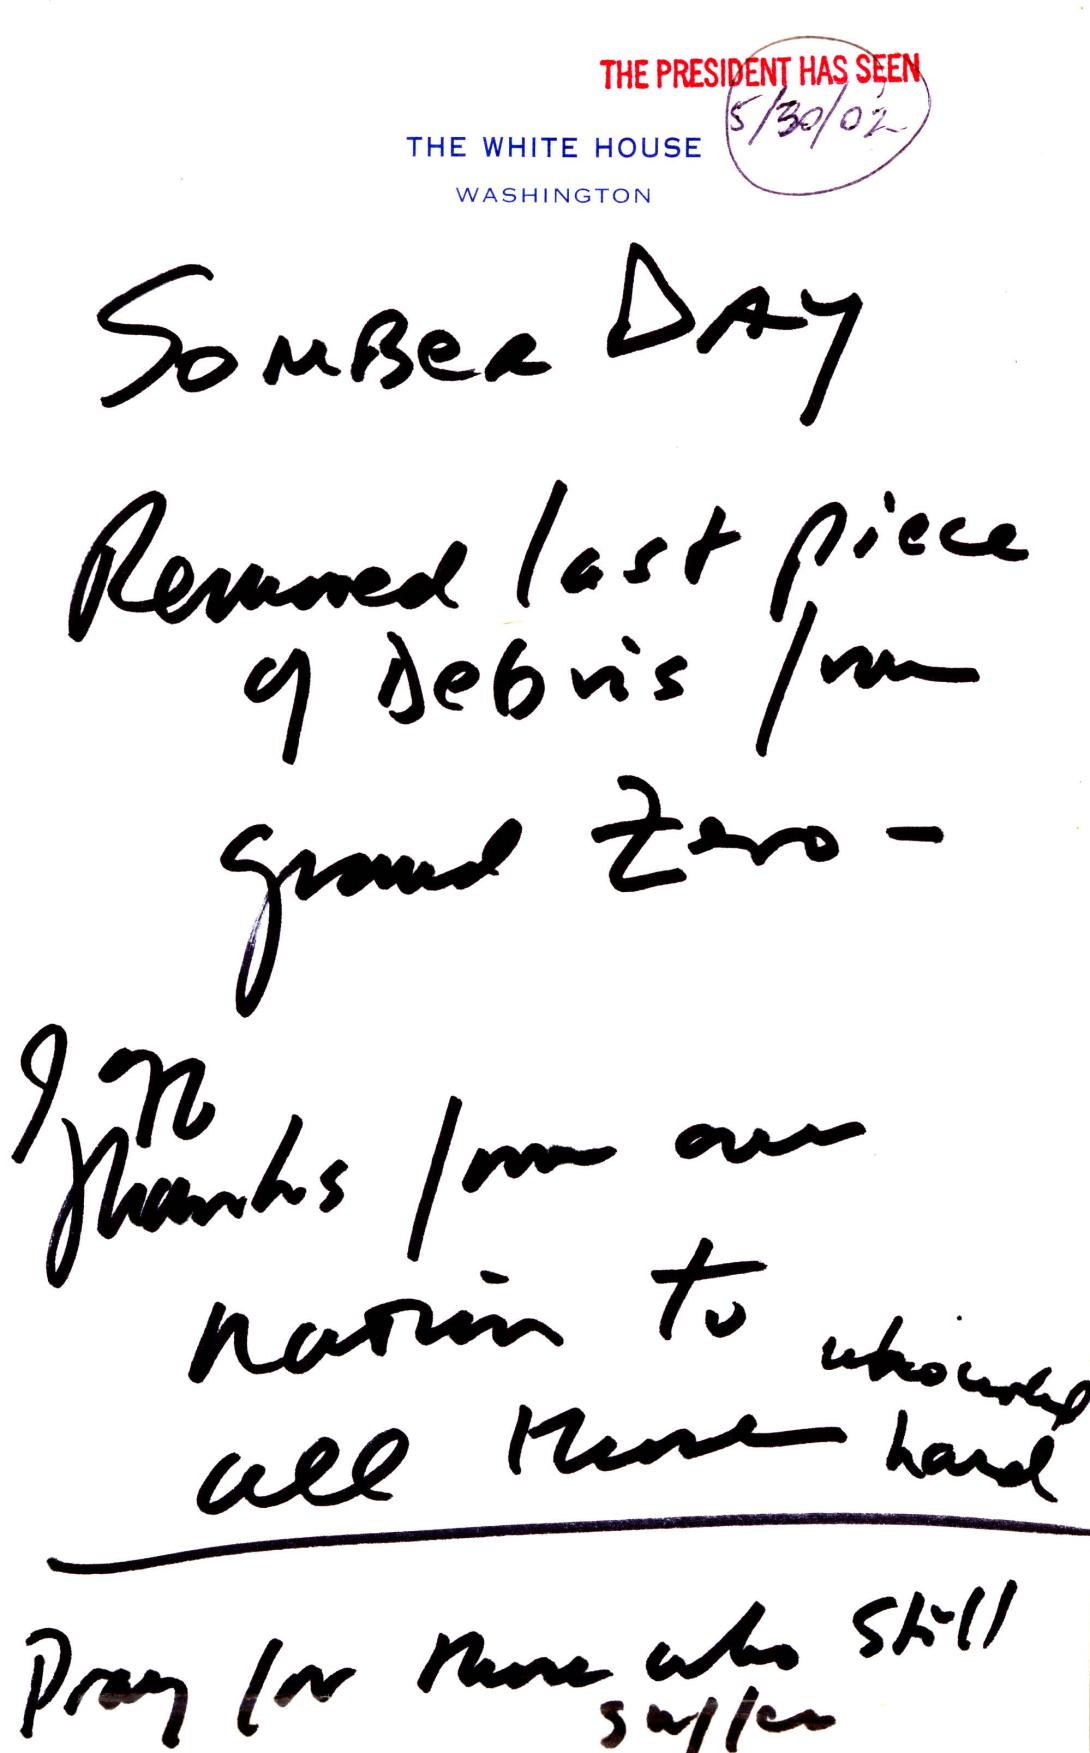 THE PRESIDENT HAS SEEN
5/30/02
THE WHITE HOUSE
WASHINGTON
SOMBER DAY
Removed last piece
of Debris from
ground Zero -
Thanks from our
nation to
all those who worked
hard
Pray for those who still
suffer